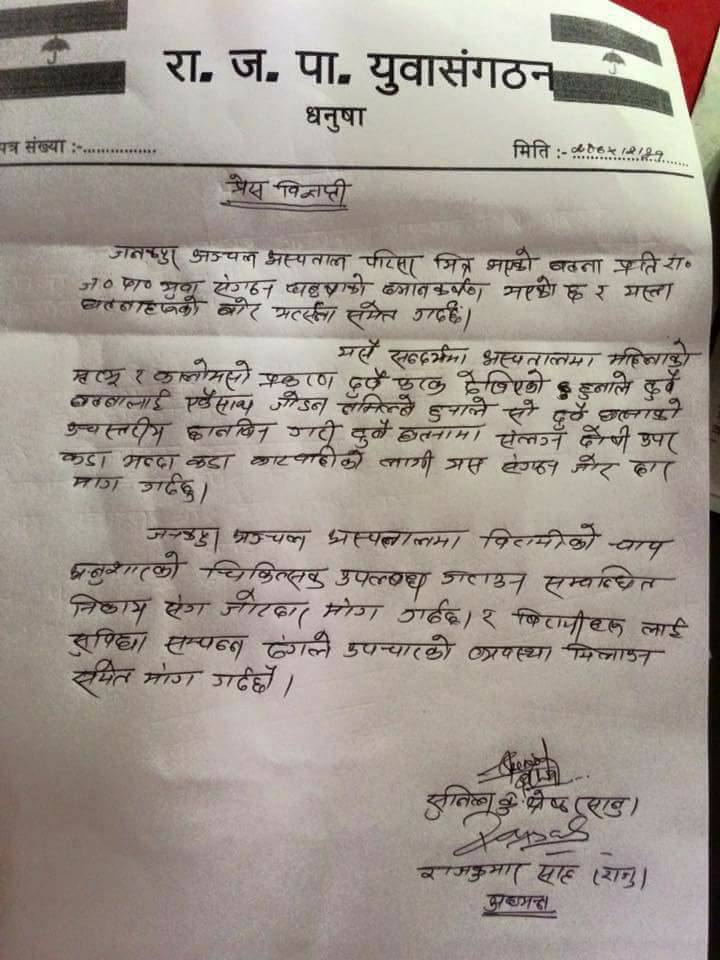 रा. ज. पा. युवासंगठन
धनुषा
पत्र संख्या :-...............
मिति :-
प्रेस विज्ञप्ती
जनकपुर अञ्चल अस्पताल परिसर भित्र भएको घटना प्रति रा०
ज० पा० युवा संगठन धनुषाको ध्यानकर्षण भएको छ र यस्ता
घटनाहरुको घोर भर्त्सना समेत गर्दछ।
यसै सन्दर्भमा अस्पतालमा महिलाको
मृत्यु र कालोमसो प्रकरण दुवै फरक देखिएको हुनाले दुवै
घटनालाई एकैसाथ जोडन नमिल्ने हुनाले सो दुवै घटनाको
उच्चस्तरीय छानविन गरी दुवै घटनामा संलग्न दोषी उपर
कडा भन्दा कडा कारवाहीको लागी यस संगठन जोर दार
माग गर्दछ।
जनकपुर अञ्चल अस्पतालमा विरामीको चाप
अनुशारको चिकित्सक उपलब्ध गराउन सम्बन्धित
निकाय संग जोरदार माग गर्दछ। र बिरामीहरु लाई
सुविधा सम्पन्न ढंगले उपचारको व्यवस्था मिलाउन
समेत माग गर्दछौं।
कु० श्रेष्ठ (सानु)
राजकुमार साह (रानु)
अध्यक्ष